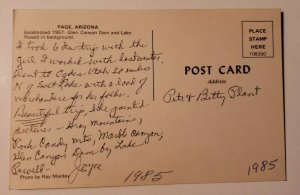 PAGE, ARIZONA
Established 1957. Glen Canyon Dam and Lake
Powell in background.
PLACE
STAMP
HERE
108390
I took 6 day trip with the
girl I worked with last winter.
Went to Ogden Utah 50 miles
N of Salt Lake with a load of
for the folks.
Beautiful trip. She painted
pictures - Gray Mountains,
Rock Candy Mts, Marble Canyon,
Glen Canyon Dam by Lake
Powell -
POST CARD
Address
Pete & Betty Plant
1985
1985
Photo by Ray Manley